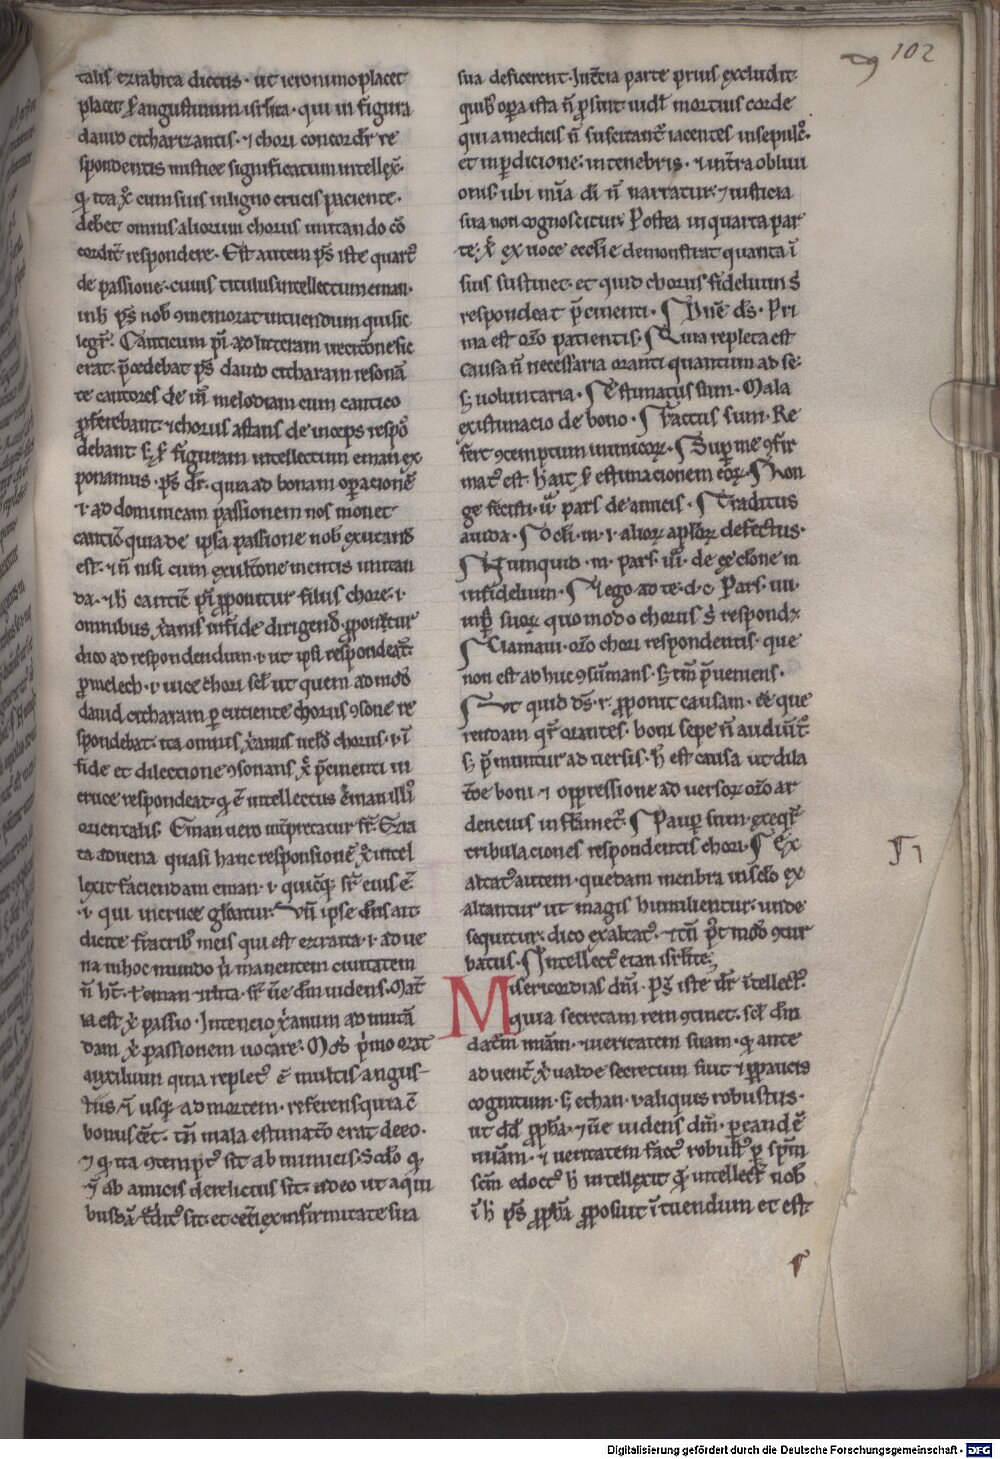 102
talis ezrahita dictus · ut ieronimo placet
placet ł augustinum isrlita · qui in figura
dauid citharizantis · ⁊ chori concordit̃ re
spondentis mistice significatum intellex̃ ·
q̨ ita xp̃c cum suis in ligno crucis paciente ·
debet omnis aliorum chorus imitando cõ
cordit̃ respondere · Est autem ps̃ iste quart᷒
de passione · cuius titulus intellectum eman ·
in h̃ ps̃ nob̃ ꝯmemorat intuendum qui sic
legit̃ · Canticum pĩ ad litteram
erat · p̃cedebat ps̃ dauid citharam resonã
te cantores de melodiam cum cantico
ꝓferebant · ⁊ chorus astans deinceps respõ
debant figuram intellectum eman ex
ponamus · ps̃ dr̃ · quia ad bonam oꝑacionẽ
·i· ad domincam passionem nos monet
canticũ quia de ipsa passione nob̃ exultand̃
est · ⁊ ñ nisi cum exultõne mentis imitan
da · ⁊ h̃ canticũ pĩ ꝓponitur filiis chore · ·i·
omnibus xp̃ianis in fide dirigend̃ ꝓponitur
dico ad respondendum · ·i· ut ipsi respondeãt
ꝑ melech · ·i· uice chori scł ut quem ad mod̃
dauid citharam percutiente chorus ꝯsone re
spondebat · ita omnis xp̃ianus uełd chorus · ·i· ĩ
fide et dileccione ꝯsonans xp̃o p̃cinenti in
cruce respondeat · q̨ ẽ intellectus eman illi᷒
orientalis · Eman uero int̃pretatur fr̃ · Ezra
ita aduena quasi hanc responsionẽ xp̃i intel
lexit faciendam eman · ·i· quicũq̨ fr̃ eius ẽ ·
·i· qui in cruce głoatur · Vñ ipse dñs ait ·
dicite fratrib᷒ meis qui est ezraita · ·i· adue
na in hoc mundo ñ manentem ciuitatem
ñ h̃t · ł eman isrlita · fr̃ ũe dm̃ uidens · Mat̃
ia est xp̃i passio · Intencio xp̃ianum ad imitã
dam xp̃i passionem uocare · Mod̃ p̃mo orat
auxilium quia replet᷒ ẽ multis angus
tiis ĩ usq̨ ad mortem · referens quia ẽ
bonus ẽẽt · tñ mala estimatõ erat de eo ·
⁊ q̨ ita ꝯtempt᷒ sit ab inimicis · Scd̃o q̨
ab amicis derelictus sit · ideo ut a qui
busdã t᷒dit᷒ sit · et cet̃i ex infirmitate sua
sua deficerent · In t̃cia parte prius excludit
quib᷒ opera ista ñ ꝓsint uidł mortuis corde
qui a medicis ñ suscitant̃ iacentes in sepulc᷒ ·
et in ꝑdicione · in tenebris · ⁊ in t̃ra obliui
onis · ubi mĩa dĩ ñ narratur · ⁊ iusticia
sua non cognoscitur · Postea in quarta par
te · xp̃c ex uoce ecclie demonstrat quanta ĩ
suis sustinet · et quid chorus fidelium s̃
respondeat p̃cinenti · Dñe ds̃ · Pri
ma est orõ pacientis · Quia repleta est
causa ñ necessaria oranti quantum ad se ·
s; uoluntaria · Estimatus sum · Mala
existimacio de bono · Factus sum · Re
fert ꝯtemptum inimicoꝝ · Super me ꝯfir
mat᷒ est · h̃ ait ł estimacionem eoꝝ · Lon
ge fecisti · ii᷒ pars de amicis · Traditus
a iuda · Ocli · m · ·i· alioꝝ apłoꝝ defectus ·
Numquid · m · pars · iii᷒ · de exclõne in
infidelium · Et ego ad te · d · c · Pars · iiii ·
suoꝝ quomodo chorus s̃ respond᷒
Clamaui · orõ chori respondentis · que
non est adhuc ꝯsũmans · s; tm̃ p̃ueniens ·
Vt quid ds̃ · r · ꝓponit causam · ee que
rendam qr̃ orantes · boni sepe ñ audiunt̃
s; p̃muntur ad uersis · h̃ est causa ut dila
tõe boni ⁊ oppressione aduersoꝝ orõ ar
dencius inflãmet̃ · Pauper sum · exeq̃r
tribulaciones respondentis chori · Ex
altat᷒ autem · quedam menbra in scło ex
altantur ut magis humilientur · unde
sequitur · dico exaltat᷒ · ⁊ tñ p᷒t mod̃ ꝯtur
batus · Intellect᷒ etan isrłite ·
Misericordias dñi · Ps̃ iste dr̃ ĩtellect᷒ ·
quia secretam rem ꝯtinet · scł dm̃
datur̃ mĩam · ⁊ ueritatem suam · q̨ ante
aduent᷒ xp̃i ualde secretum fuit ⁊ ꝑ paucis
cognitum · s; ethan · ·i· aliquis robustus ·
ut dd̃ ꝓpħa · ⁊ ũe uidens dm̃ · ꝑ eandẽ
mĩam · ⁊ ueritatem fact᷒ robust᷒ ꝑ spm̃
scm̃ edoct᷒ h̃ intellexit q̨ intellect᷒ nob̃
ĩ h̃ ps̃ ꝓpħa ꝓposuit ĩtuendum et est
Digitalisierung gefördert durch die Deutsche Forschungsgemeinschaft - DFG